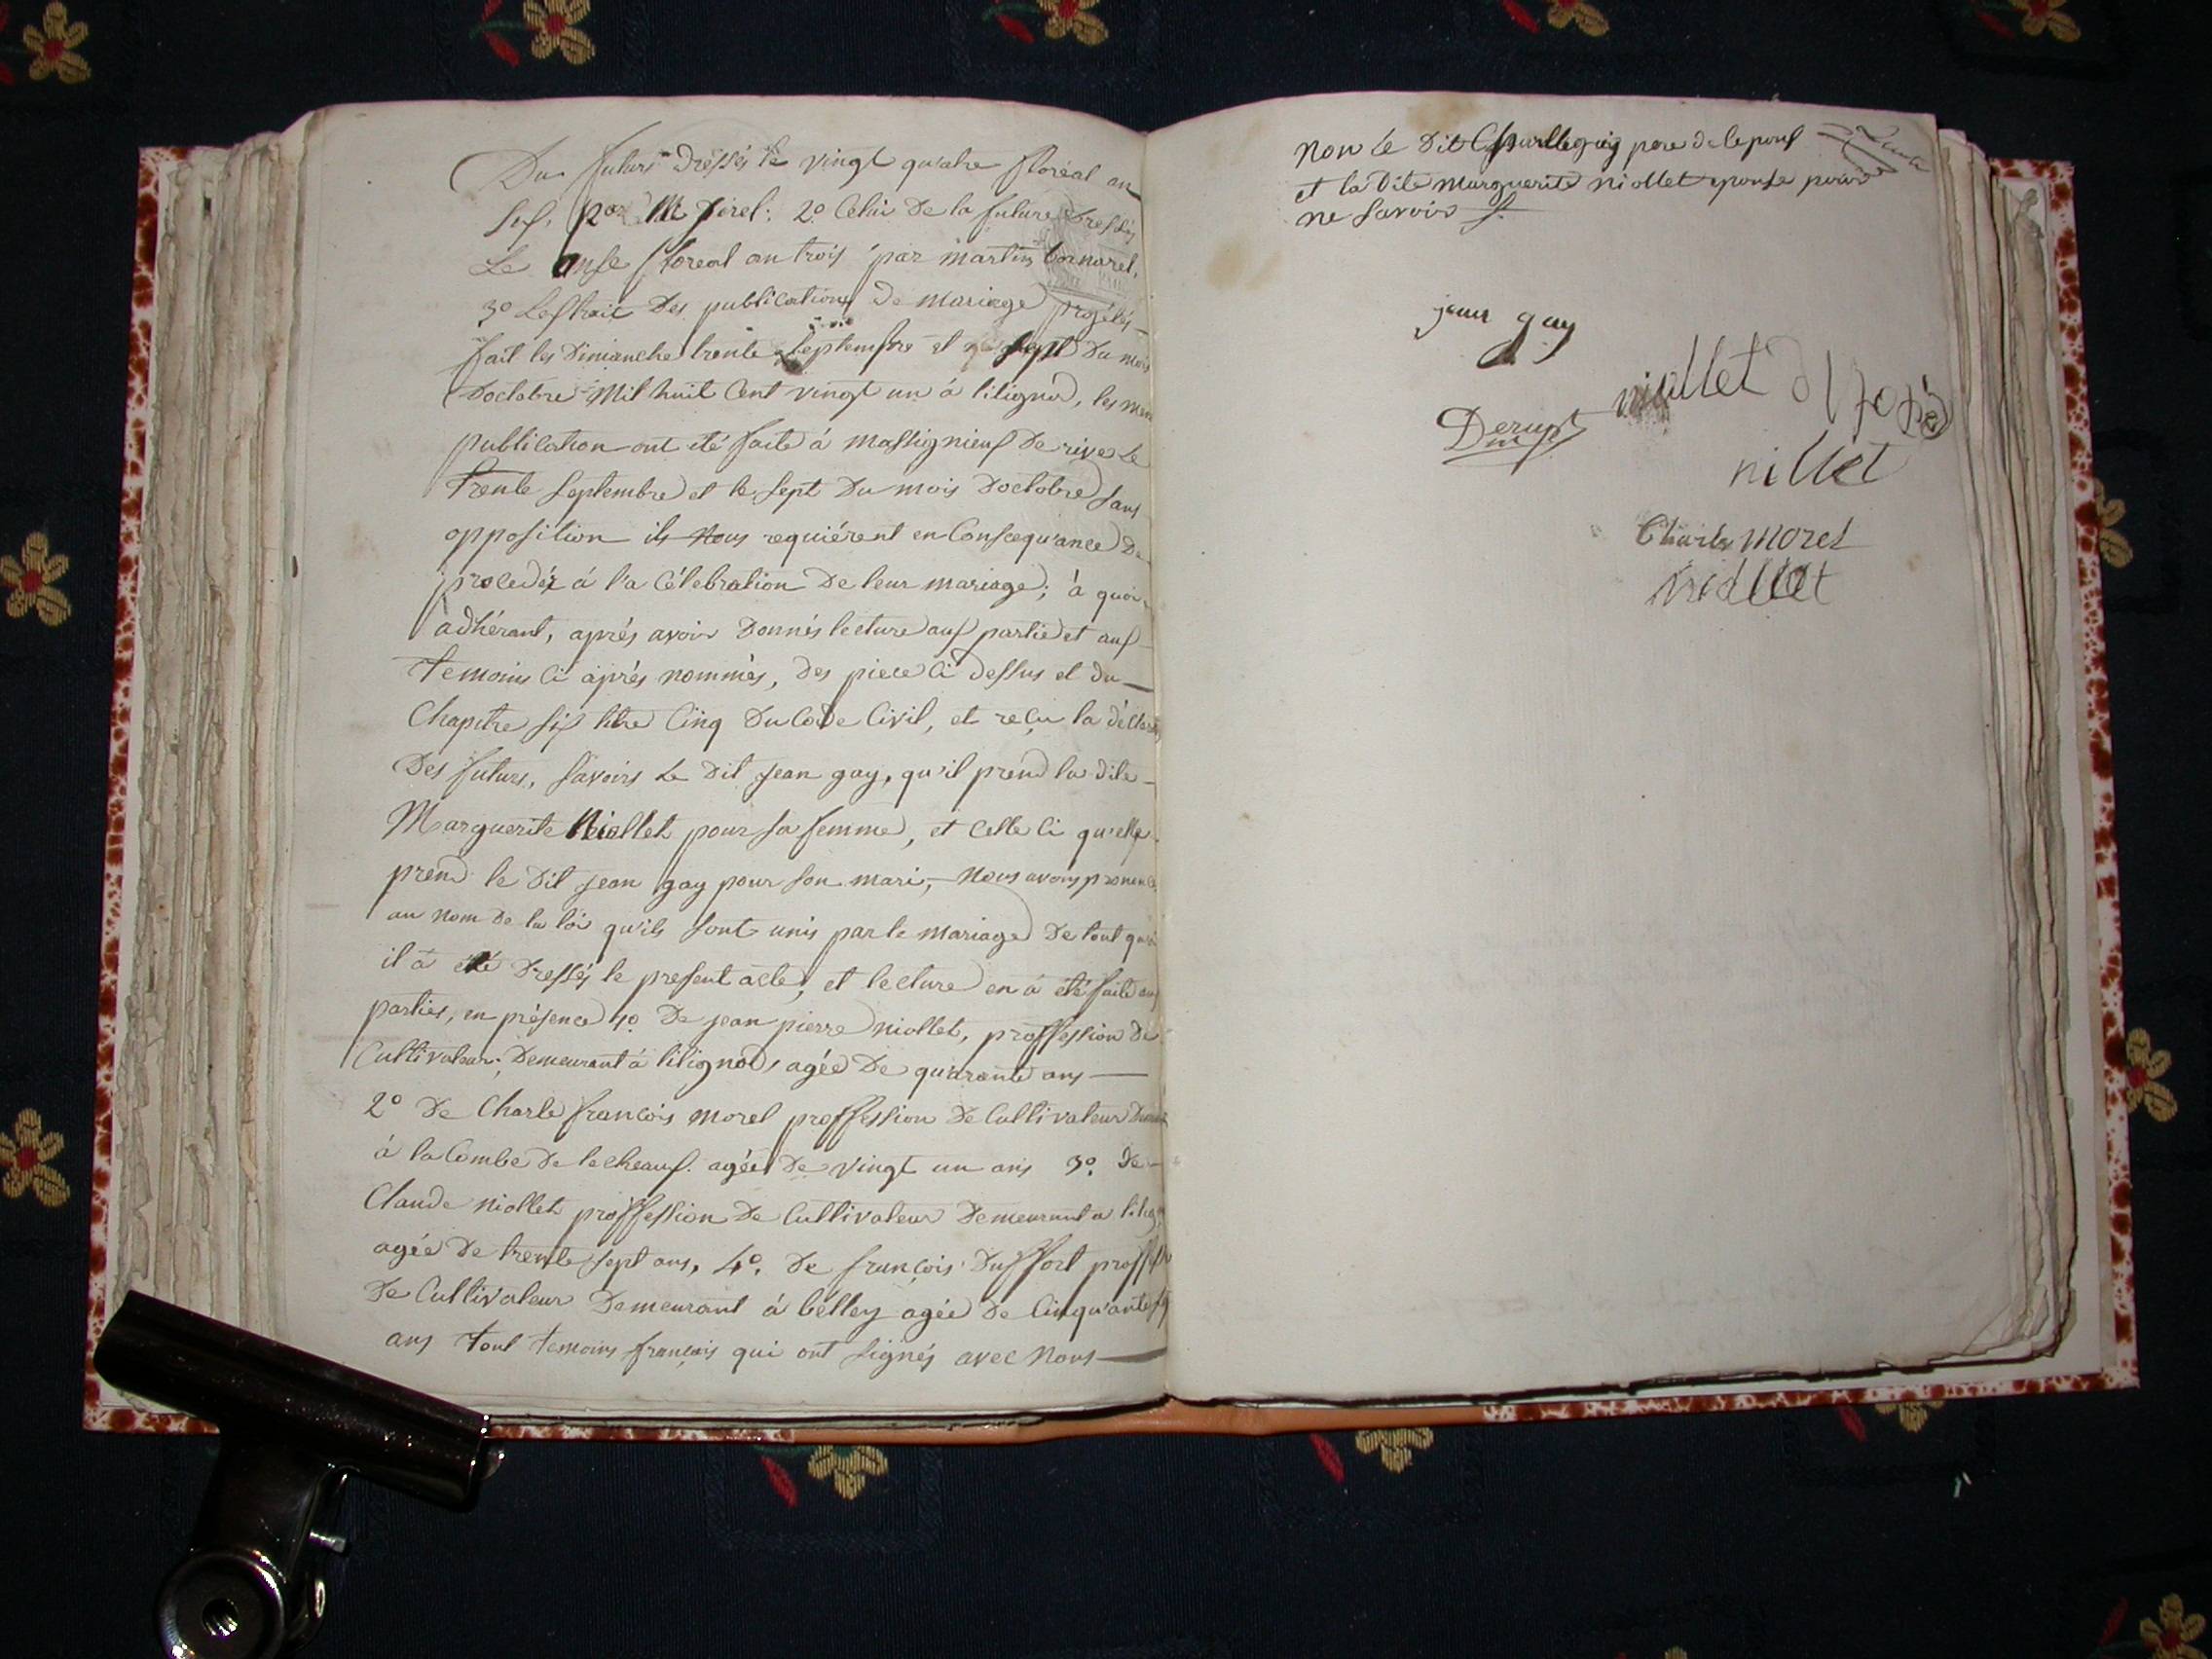 Du futur dressés le vingt quatre floréal an
six, par M. Pirel: 2º Celui De la future dressés
Le onse floreal an trois par martin Cornarel,
3º Lextrait Des publications De mariage projetés
fait les Dimanche trente septembre et sept Du mois
Doctobre Mil huit Cent vingt un à lilignod, les mem
publication ont été faite à massignieux De rive Le
trente septembre et le sept Du mois Doctobre sans
opposition ils Nous requiérent en Conscequ'ance De
proceder á l'a Célebration De leur mariage; à quoi
adhérant, aprés avoir Donnés lecture aux partie et aux
temoins Ci aprés nommés, Des piece Ci Dessus et du
Chapitre six titre Cinq Du Code Civil, et reçu la déclara
Des futurs, savoirs Le Dit jean gay, qu'il prend la dite
Marguerite Niollet pour sa femme, et Celle Ci qu'elle
prend le Dit jean gay pour son mari, Nous avons prononcé
au nom De la loi qu'ils sont unis par le mariage De tout quoi
il à été Dressés le present acte, et lecture en à été faite aux
parties, en présence 1º De jean pierre niollet, proffession De
Cultivateur, Demeurant à lilignod, agée De quarante ans
2º De Charle françois morel proffession De Cultivateur Demeurt
à la Combe De lecheaux. agée De vingt un ans 3º. De
Claude niollet proffession De Cultivateur Demeurant a lilig
agée De trente sept ans, 4º. De françois Duffort proffess
De Cultivateur Demeurant á belley agée De Cinqu'ante
ans tout temoins françois qui ont signés avec Nous
Non Le Dit Charlle gay pere De lepoux
et la Dite Marguerite niollet epouse pour
ne savoir
jean gay
niollet
Derupt
nillet
Charle morel
niollet